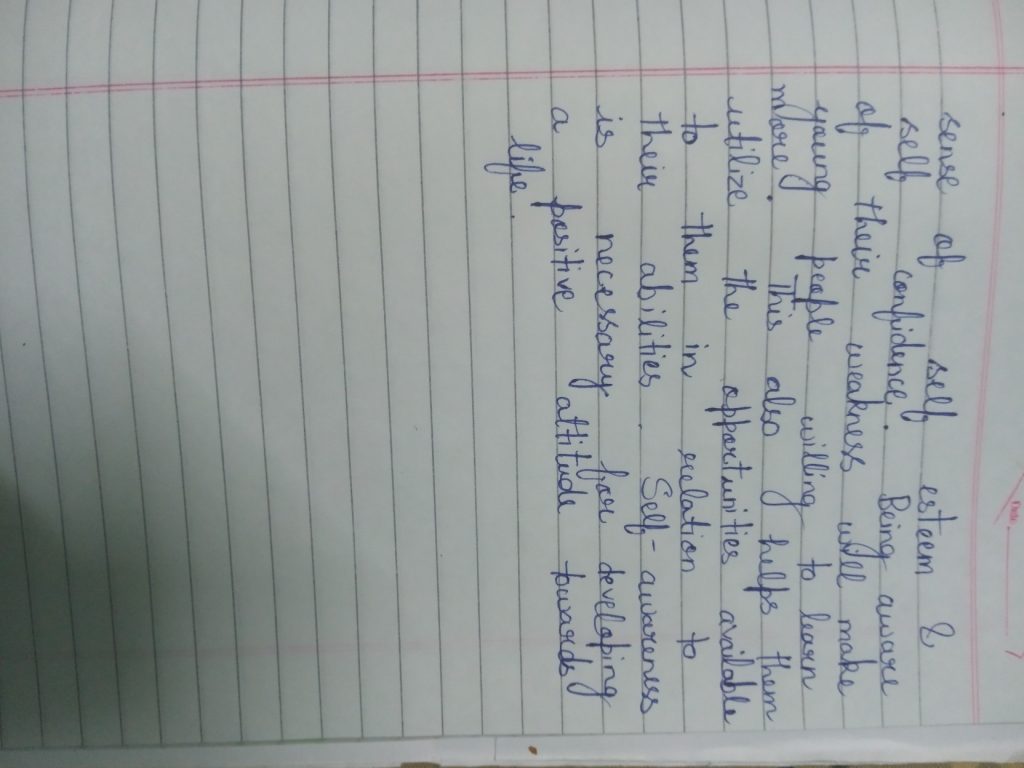 sense of self esteem &
self confidence. Being aware
of their weakness will make
young people willing to learn
more. This also helps them
utilize the opportunities available
to them in relation to
their abilities. Self-awareness
is necessary for developing
a positive attitude towards
life.